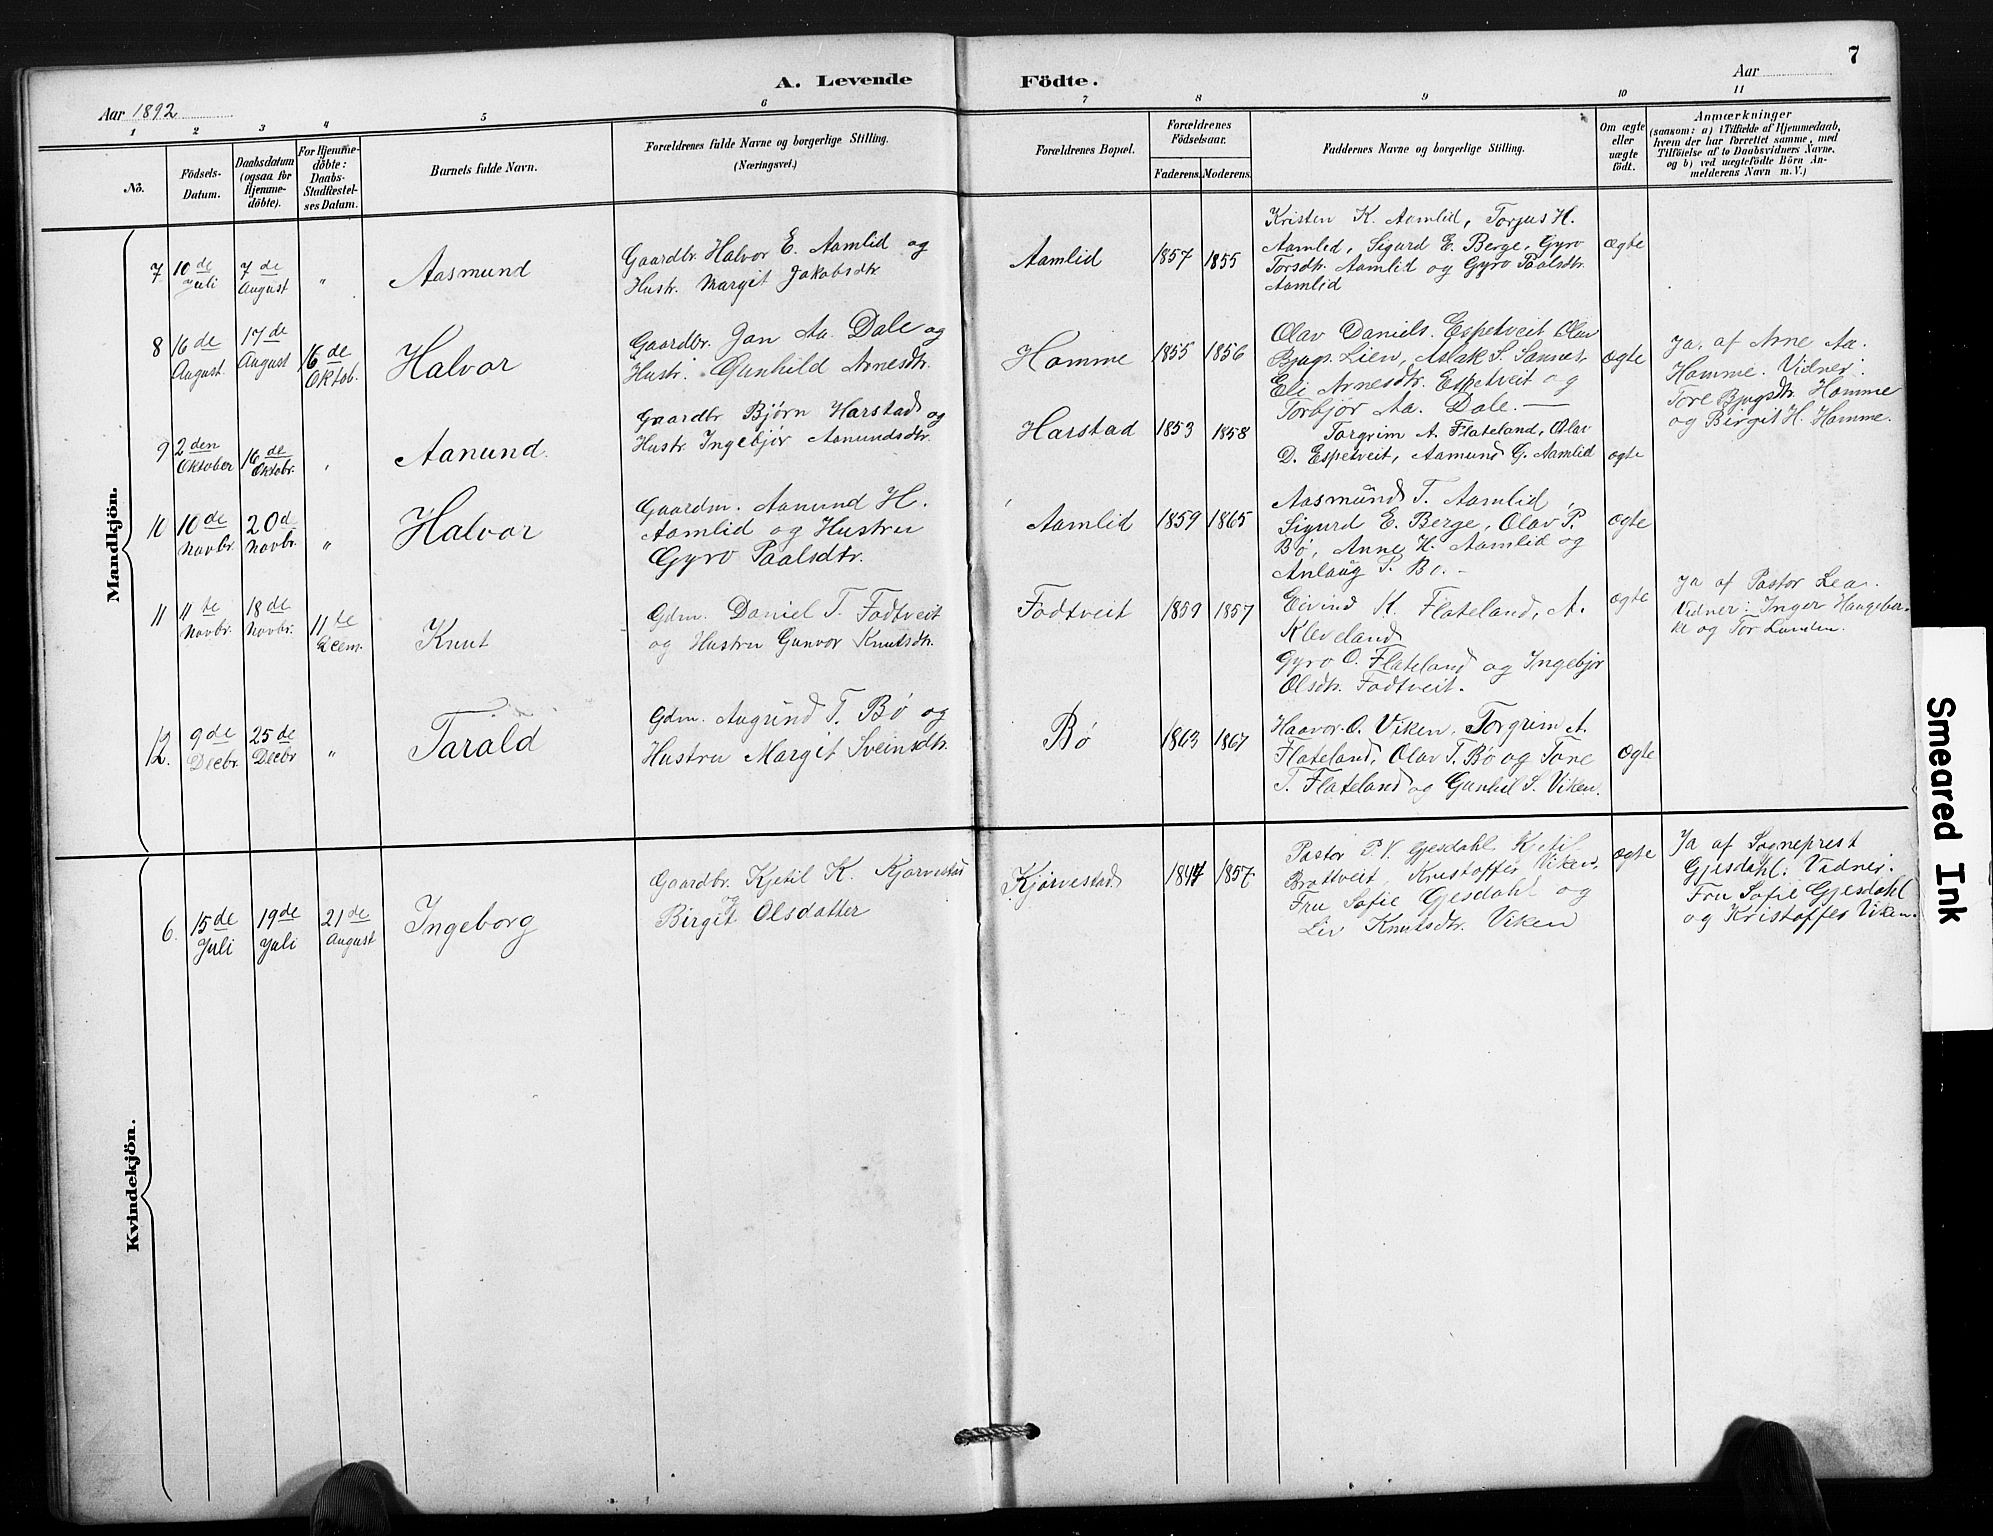 7
A. Levende Födte.
Aar 1892
Aar
1 2 3 4 5 6 7 8 9 10 11
No.
Födsels-
Datum.
Daabsdatum
(ogsaa for
Hjemme-
döbte).
For Hjemme-
döbte:
Daabs-
Stadfæstel-
ses Datum.
Barnets fulde Navn.
Forældrenes fulde Navne og borgerlige Stilling.
(Næringsvei.)
Forældrenes Bopæl.
Forældrenes
Födselsaar.
Faderens. Moderens.
Faddernes Navne og borgerlige Stilling.
Om ægte
eller
uægte
födt.
Anmærkninger
(saasom: a) i Tilfælde af Hjemmedaab,
hvem der har forrettet samme, med
Tilföielse af to Daabsvidners Navne,
og b) ved uægtefödte Börn An-
melderens Navn m. V.)
Mandkjön.
7
10de
Juli
7de
August
"
Aasmund
Gaardbr. Halvor E. Aamlid og
Hustr. Margit Jakobsdtr
Aamlid
1857
1855
Kristen K. Aamlid, Torjus H.
Aamlid, Sigurd E. Berge, Gyro
Torsdtr. Aamlid og Gyro Paalsdtr.
Aamlid
ægte
8
16de
August
17de
August
16de
Oktob.
Halvor
Gaardbr. Jon Aa. Dale og
Hustr. Gunhild Arnesdtr.
Homme
1855
1856
Olav Daniels. Espetveit Olav
Bjugs. Lien, Aslak S. Sannes.
Eli Arnesdtr. Espetveit og
Torbjør Aa. Dale.
ægte
Ja, af Arne Aa.
Homme. Vidner:
Tore Bjugsdtr. Homme
og Birgit H. Homme.
9
2den
Oktober
16de
Oktobr.
"
Aanund.
Gaardbr Bjørn Harstad og
Hustr Ingebjør Aanundsdtr.
Harstad
1853
1858
Torgrim A. Flateland, Olav
D. Espetveit, Aamund G. Aamlid
ægte
10
10de
Novbr.
20d
Novbr.
"
Halvor
Gaardm. Aanund H.
Aamlid og Hustru
Gyro Paalsdtr.
Aamlid
1859
1865
Aasmund T. Aamlid,
Sigurd E. Berge, Olav P.
Bø, Anne H. Aamlid og
Anlaug P. Bø.
ægte
11
11te
Novbr.
18de
Novbr.
11te
Decm.
Knut
Gdm. Daniel T. Fodtveit
og Hustru Gunvor Knutsdtr.
Fodtveit
1859
1857
Eivind K. Flateland, A.
Kleveland
Gyro O. Flateland og Ingebjør
Olsdtr. Fodtveit.
ægte
Ja af Pastor Lea.
Vidner: Inger Haugebir-
ke og Tor Lunden.
12.
9de
Decbr.
25de
Decbr
"
Tarald
Gdm. Augund T. Bø og
Hustru Margit Sveinsdtr.
Bø
1863
1867
Haavor O. Viken, Torgrim A.
Flateland, Olav T. Bø og Tone
T. Flateland og Gunhil S. Viken.
Ægte
Kvindekjön.
6.
15de
Juli
19de
Juli
21de
August
Ingeborg
Gaardbr. Kjetil K. Kjørvestad
og
Birgit Olsdatter
Kjørvestad
1847
1857
Pastor P. V. Gjesdahl Kjetil
Brottveit, Kristoffer Viken,
Fru Sofie Gjesdahl og
Liv Knutsdtr. Viken
ægte
Ja af Sogneprest
Gjesdahl. Vidner:
Fru Sofie Gjesdahl
og Kristoffer Viken.
Smeared Ink